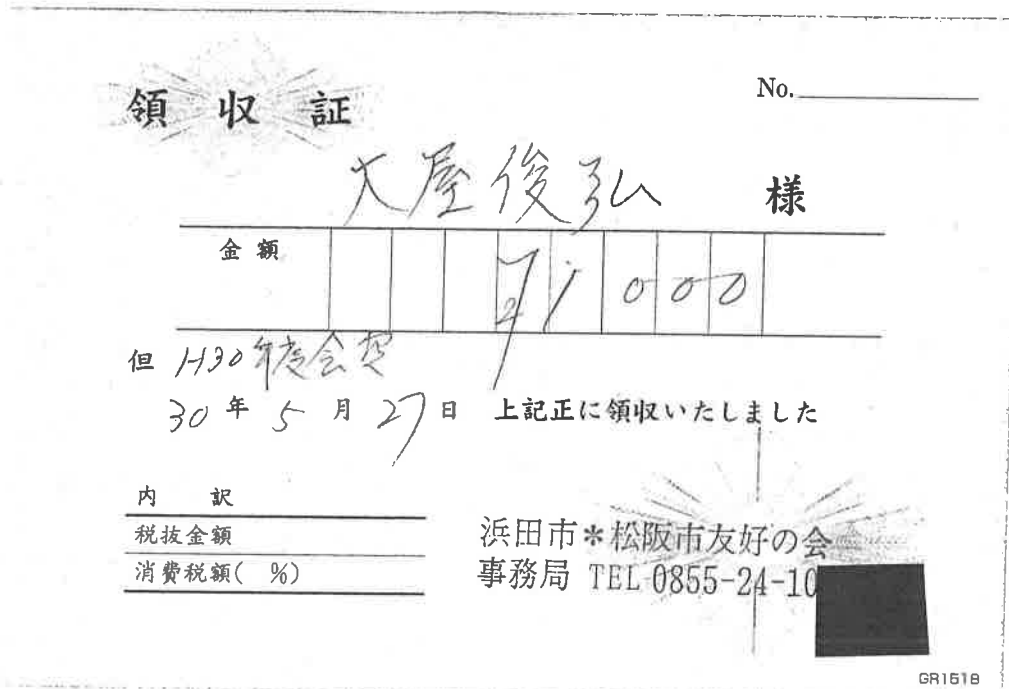 領収証
No.
大屋俊弘 様
金額 1,000
但 H30年度会費
30年5月27日 上記正に領収いたしました
内訳
税抜金額
消費税額( %)
浜田市*松阪市友好の会
事務局 TEL 0855-24-10
GR1518